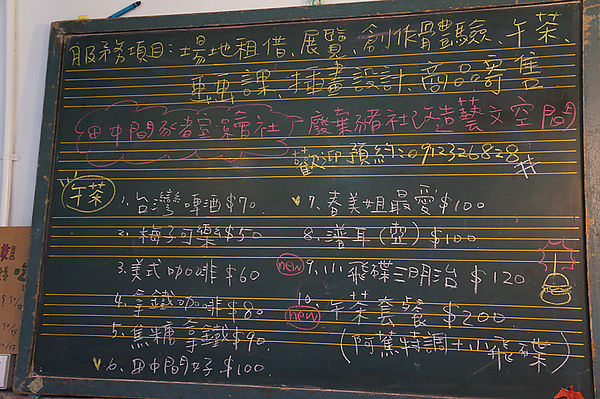 服務項目:場地租借、展覽、創作體驗、午茶、
畫畫課、插畫設計、商品寄售
田中間於者室繪社 廢棄豬社改造藝文空間
歡迎預約:0912326828
午茶
1. 台灣啤酒$70.
2. 梅子可樂$50
3. 美式咖啡$60
4. 拿鐵咖啡$80
5. 焦糖拿鐵$90
v 6. 田中間好$100.
v 7. 春美姐最愛$100
8. 普耳(壺)$100.
new 9. 小飛碟三明治$120
new 10. 午茶套餐$200
(阿篤特調+小飛碟)